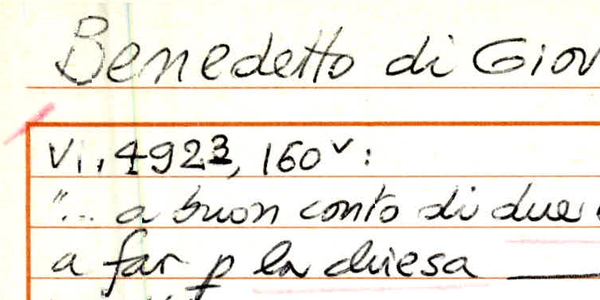 Benedetto di Giov
Vi, 4923, 160v:
"... a buon conto di due
a far p la chiesa